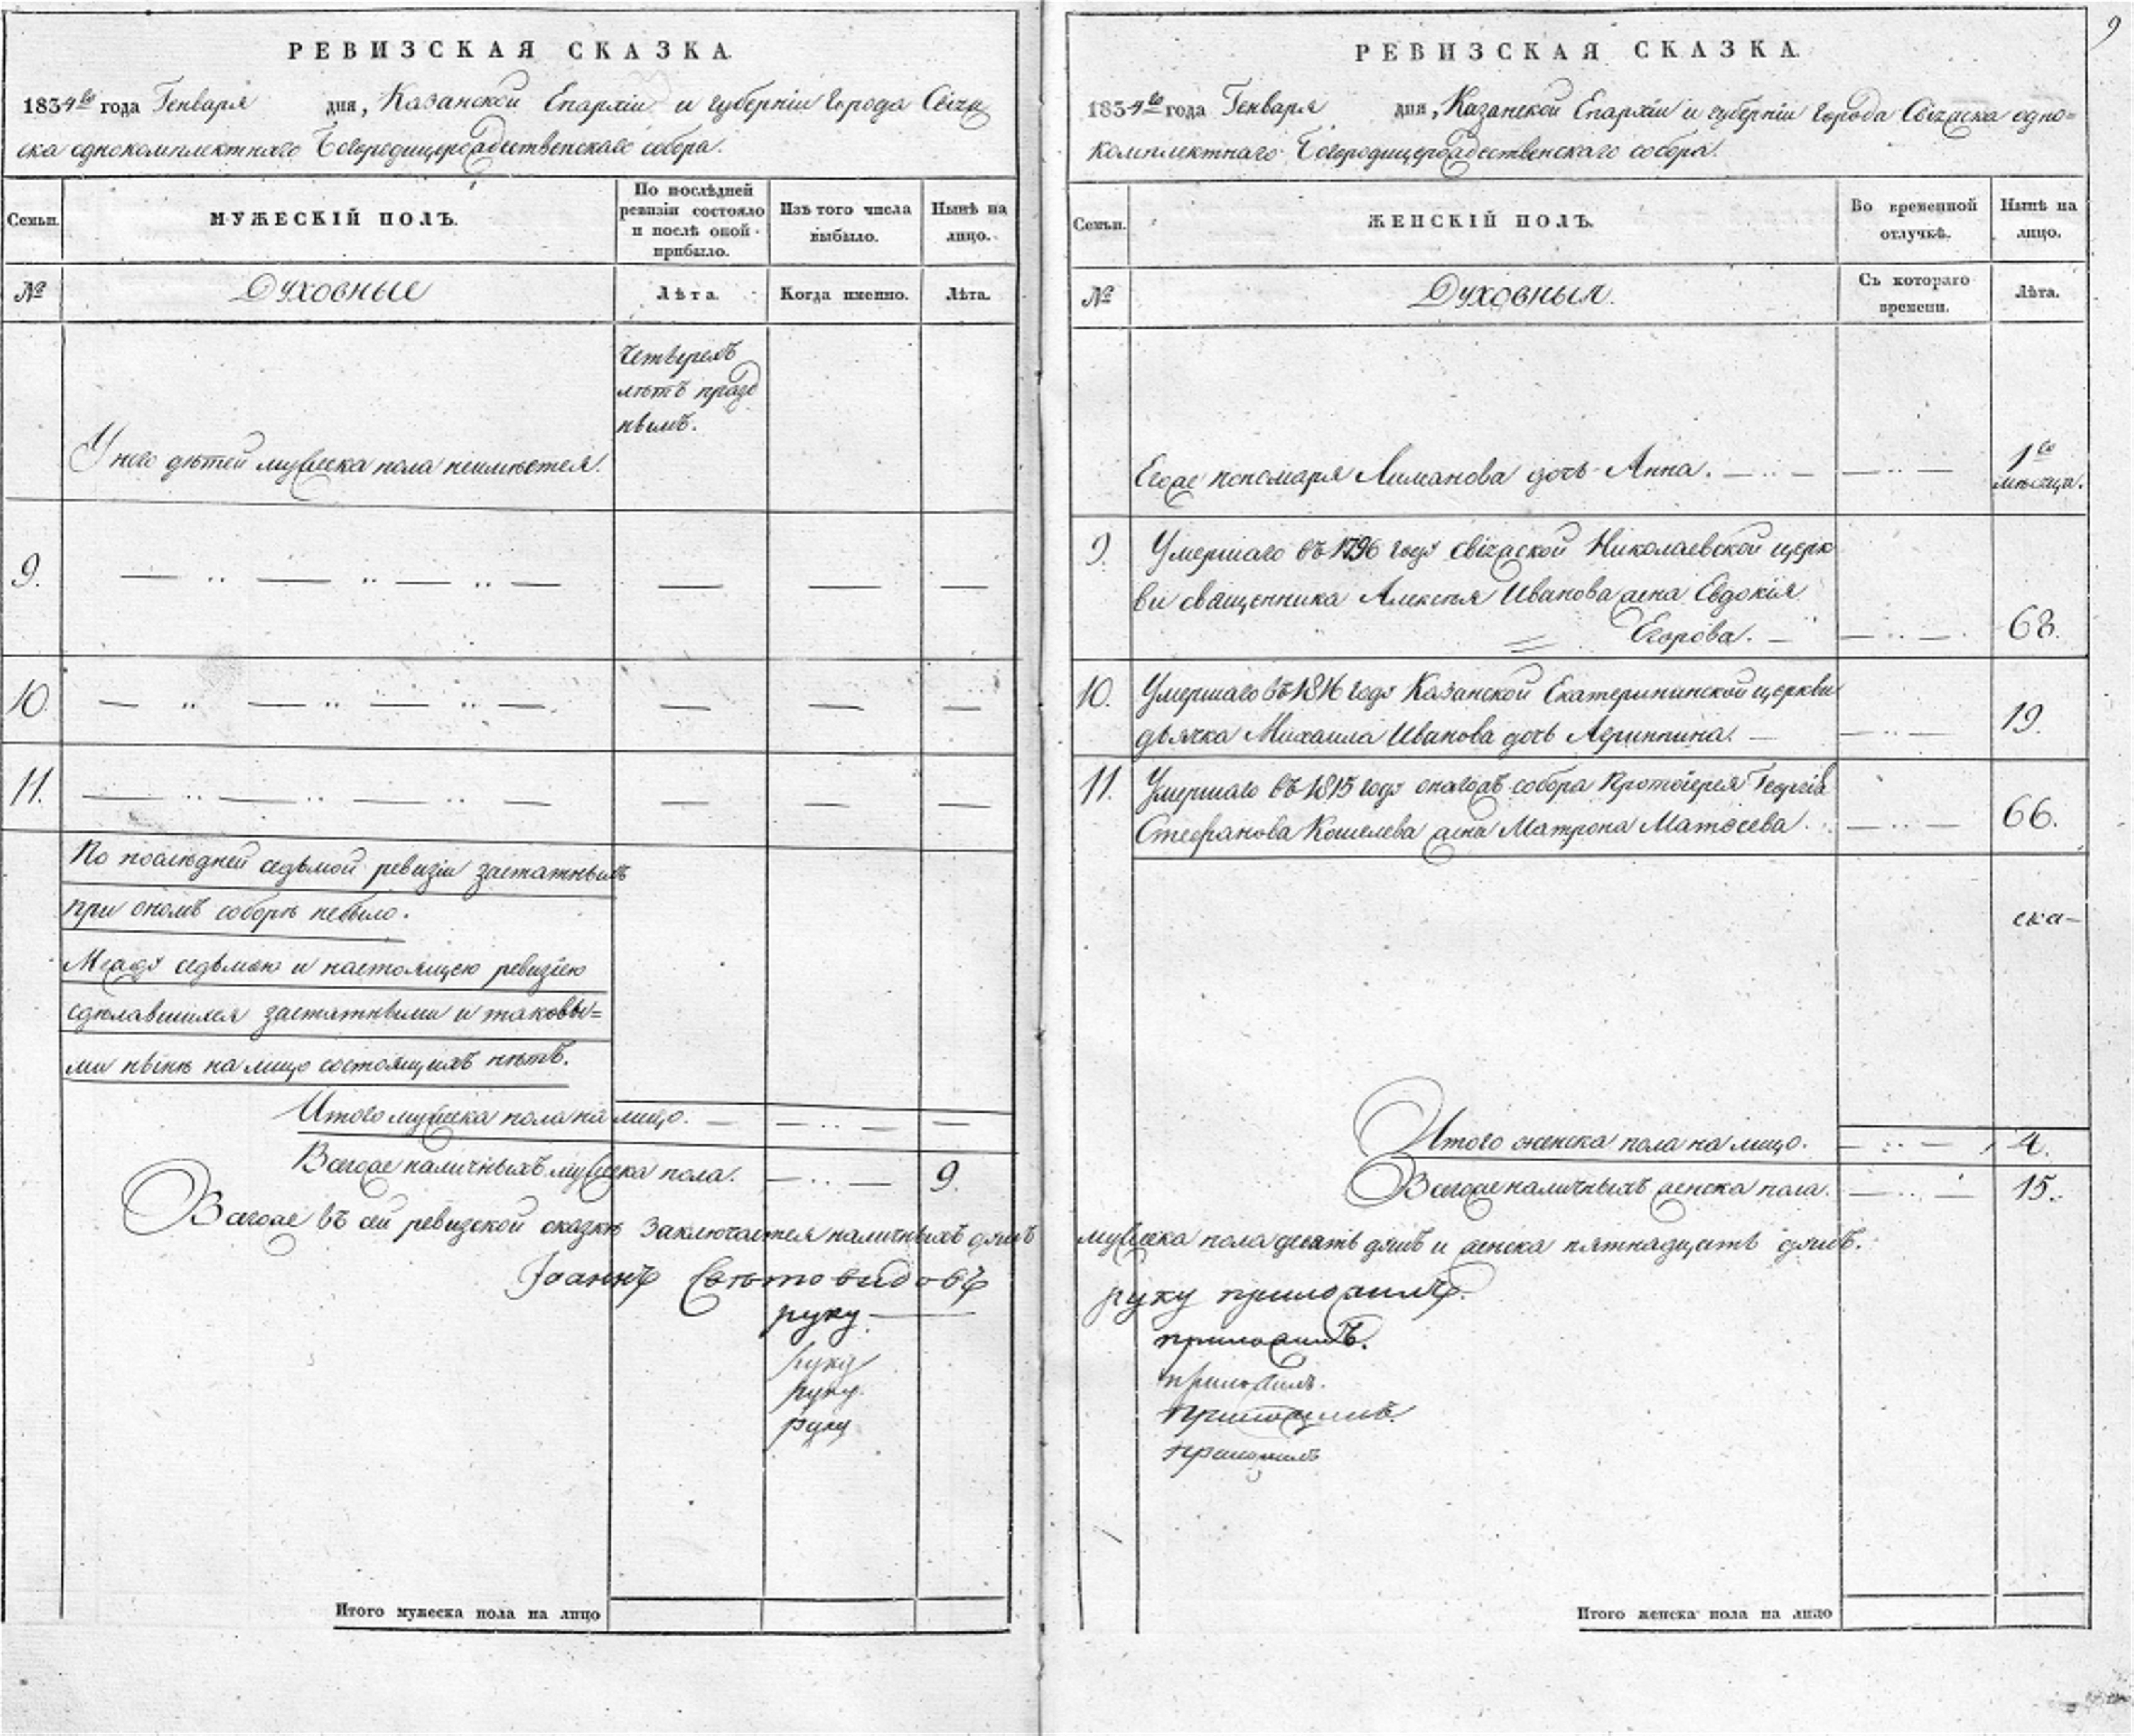 РЕВИЗСКАЯ СКАЗКА.
1834го года Генваря дня, Казанской Епархіи и губерніи города Свіяж
ска однокомплектнаго Богородицерождественскаго собора.
Семьи.
МУЖЕСКІЙ ПОЛЪ.
По послѣдней
ревизіи состояло
и послѣ оной
прибыло.
Изъ того числа
выбыло.
Нынѣ на
лицо.
№
Духовные
Лѣта.
Когда именно.
Лѣта.
Четверехъ
лѣтъ
У него дѣтей мужеска пола неимѣется.
9.
10
11.
По послѣдней седьмой ревизіи заштатныхъ
при ономъ соборѣ небыло.
Между седьмою и настоящею ревизіею
сдѣлавшихся заштатными и таковы=
ми нынѣ на лицо состоящихъ нѣтъ.
Итого мужеска пола на лицо.
Всегоже наличныхъ мужеска пола. 9.
Всегоже въ сей ревизской сказкѣ заключается наличныхъ душъ
Іоаннъ
руку
руку
руку
руку
Итого мужеска пола на лицо
9
РЕВИЗСКАЯ СКАЗКА.
1834го года Генваря дня, Казанской Епархіи и губерніи города Свіяжска одно=
комплектнаго Богородицерождественскаго собора.
Семьи.
ЖЕНСКІЙ ПОЛЪ.
Во временной
отлучкѣ.
Нынѣ на
лицо.
№
Духовныя.
Съ котораго
времени.
Лѣта.
Егоже пономаря Лиманова дочь Анна. 1го
мѣсяца.
9. Умершаго въ 1796 году свіяжской Николаевской церк
ви священника Алексѣя Иванова жена Евдокія
Егорова. 68.
10. Умершаго въ 1816 году Казанской Екатерининской церкви
дьячка Михаила Иванова дочь Агрипина. 19.
11. Умершаго въ 1815 году онагожъ собора Протоіерея Георгія
Стефанова Кошелева жена Матрона Матвеева. 66.
ска-
Итого женска пола на лицо. 4.
Всегоже наличныхъ женска пола. 15.
мужеска пола десять душъ и женска пятнадцать душъ.
руку приложилъ.
приложилъ.
приложилъ.
приложилъ.
приложилъ
Итого женска пола на лицо